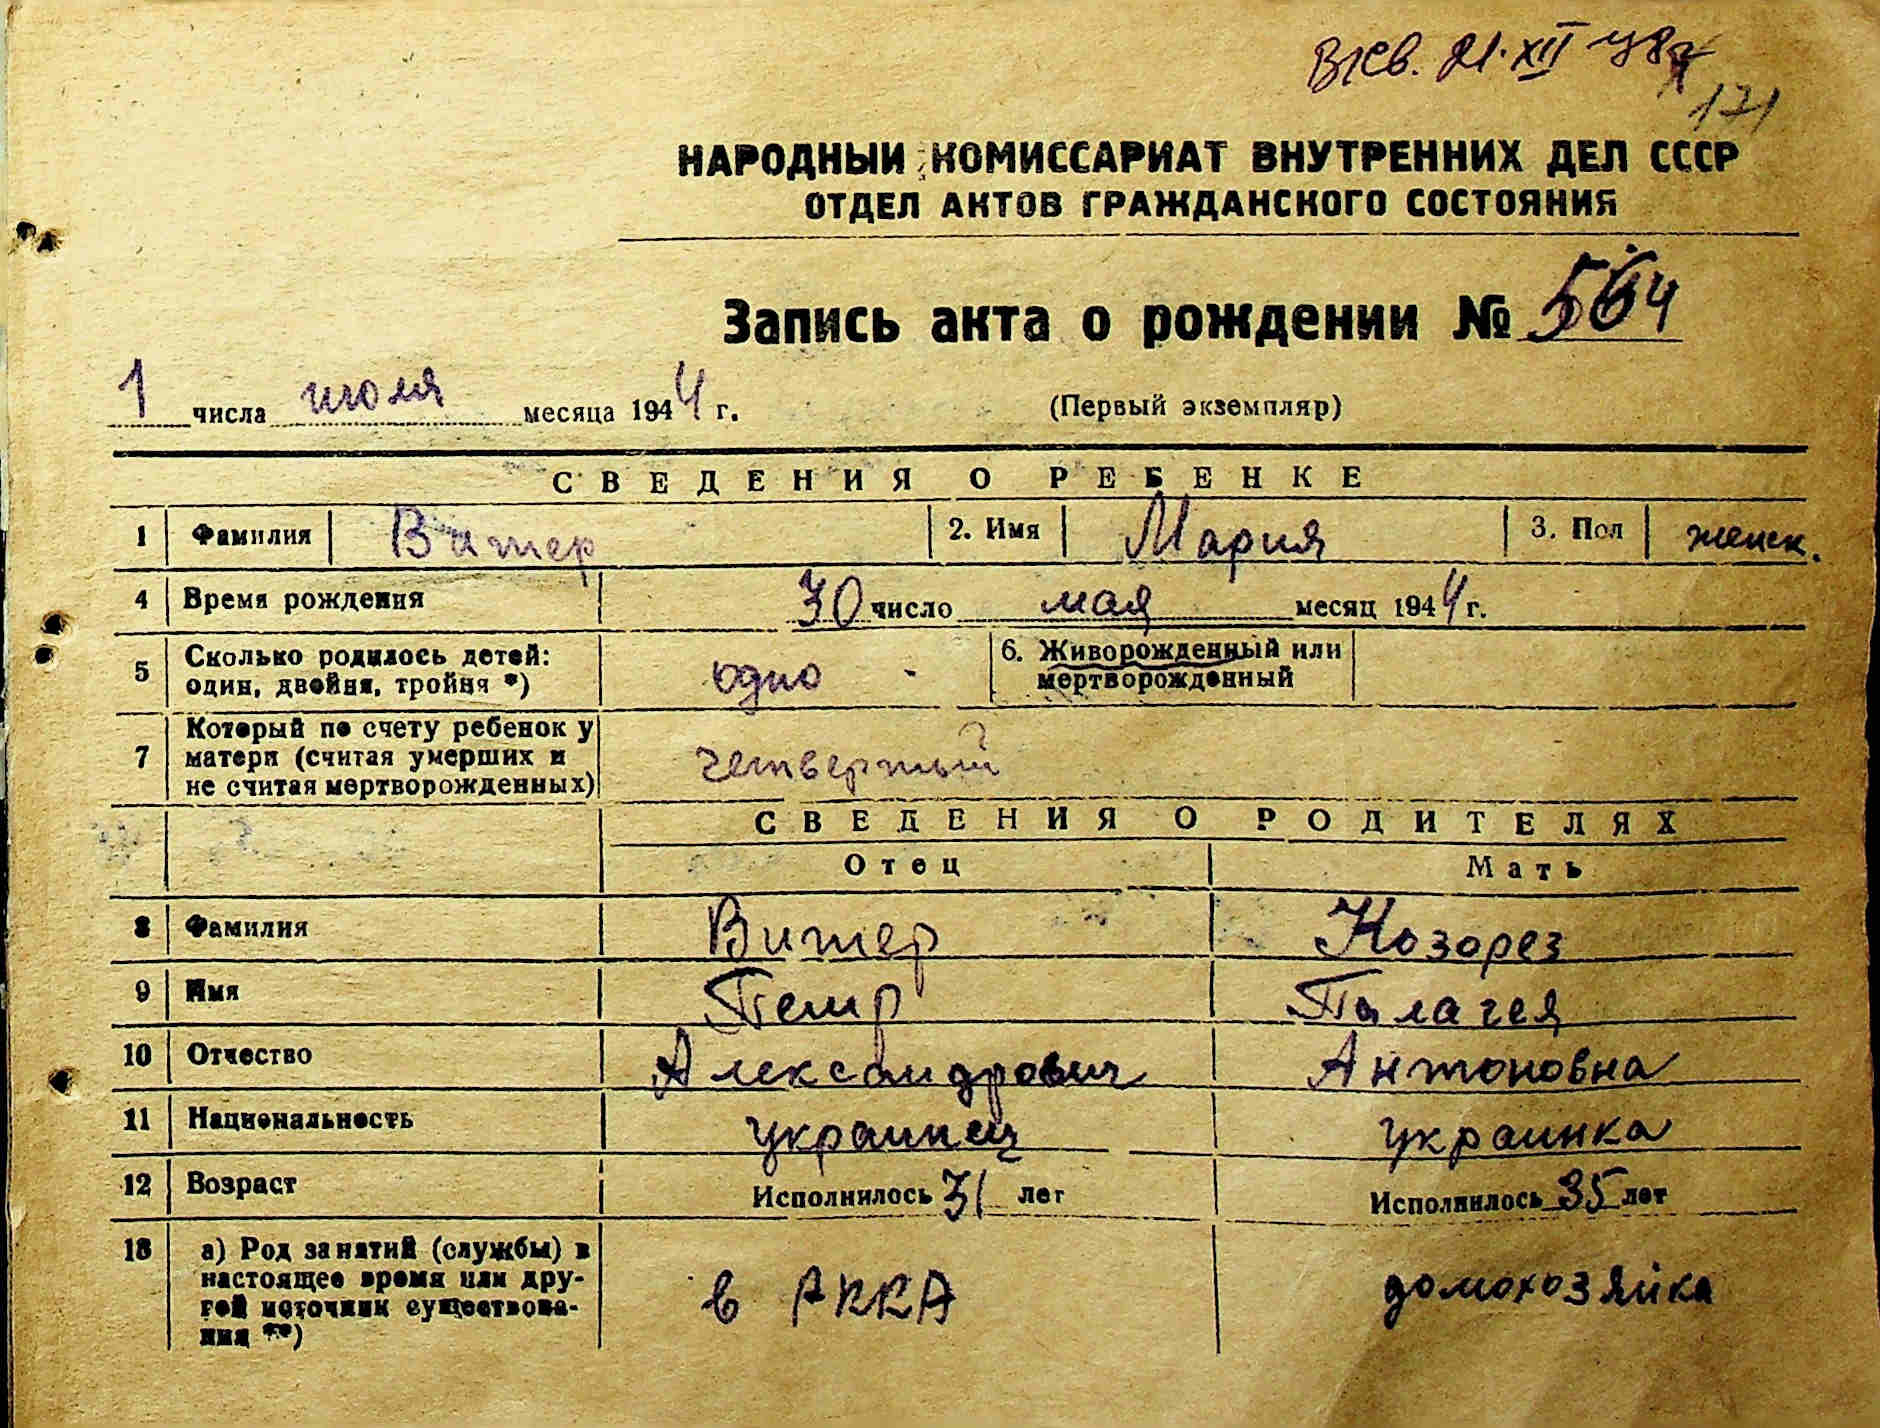 171
НАРОДНЫЙ КОМИССАРИАТ ВНУТРЕННИХ ДЕЛ СССР
ОТДЕЛ АКТОВ ГРАЖДАНСКОГО СОСТОЯНИЯ
Запись акта о рождении № 564
1 числа июля месяца 1944 г. (Первый экземпляр)
СВЕДЕНИЯ О РЕБЕНКЕ
1 Фамилия Витер 2. Имя Мария 3. Пол женск.
4 Время рождения 30 число мая месяц 1944 г.
5 Сколько родилось детей: один, двойня, тройня *) одно 6. Живорожденный или мертворожденный
7 Который по счету ребенок у матери (считая умерших и не считая мертворожденных) четвертый
СВЕДЕНИЯ О РОДИТЕЛЯХ
Отец Мать
8 Фамилия Витер Козорез
9 Имя Петр Палагея
10 Отчество Александрович Антоновна
11 Национальность украинец украинка
12 Возраст Исполнилось 31 лет Исполнилось 35 лет
13 а) Род занятий (службы) в настоящее время или другой источник существования **) в РККА домохозяйка